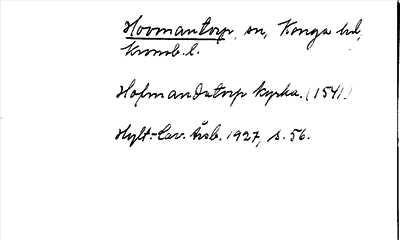 Hovmantorp, sn, Konga hd,
Kronob. l.
Hofmandatorp kyrka. (1541)
Hylt.-Cav. årsb. 1927, s. 56.